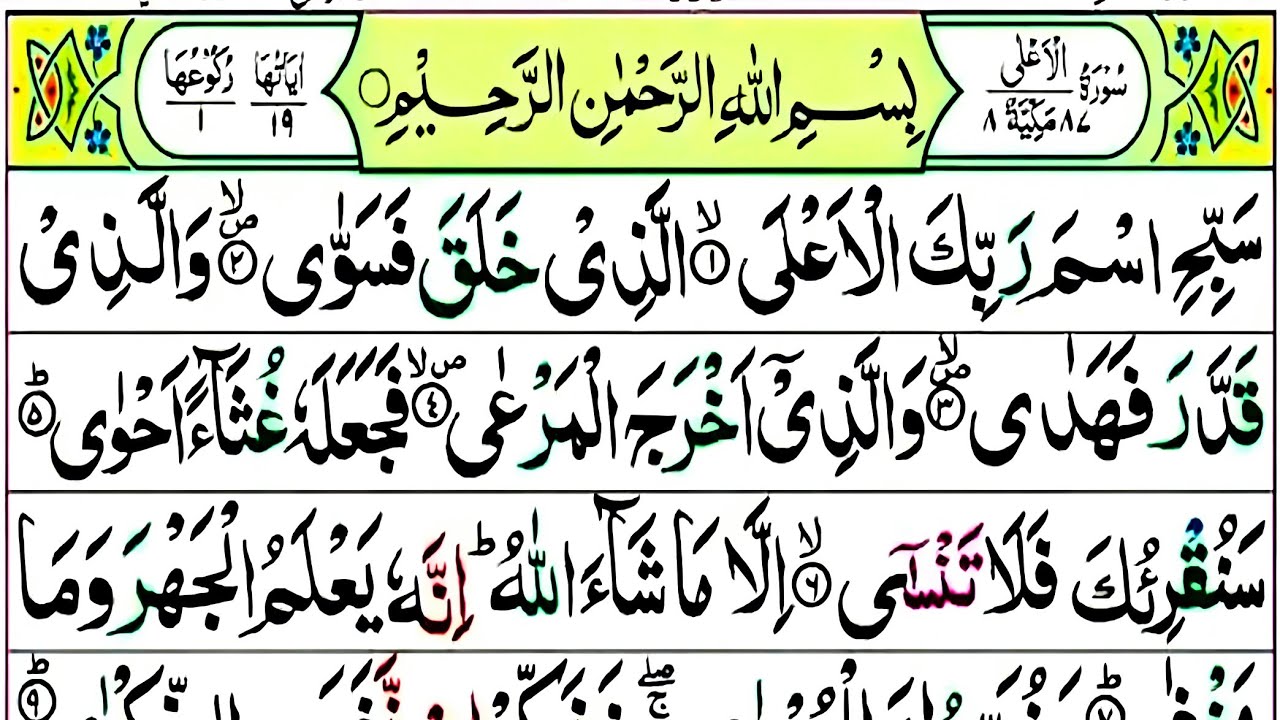 سُوْرَةُ الْاَعْلٰى ٨٧ مَكِّيَّةٌ ٨
بِسْمِ اللّٰهِ الرَّحْمٰنِ الرَّحِيْمِ
اٰيَاتُهَا ١٩ رُكُوْعُهَا ١
سَبِّحِ اسْمَ رَبِّكَ الْاَعْلَى ۙ﴿١﴾ الَّذِىْ خَلَقَ فَسَوّٰى ۪ۙ﴿٢﴾ وَالَّذِىْ
قَدَّرَ فَهَدٰى ۪ۙ﴿٣﴾ وَالَّذِىْٓ اَخْرَجَ الْمَرْعٰى ۪ۙ﴿٤﴾ فَجَعَلَهٗ غُثَآءً اَحْوٰى ؕ﴿٥﴾
سَنُقْرِئُكَ فَلَا تَنْسٰٓى ۙ﴿٦﴾ اِلَّا مَا شَآءَ اللّٰهُ ؕ اِنَّهٗ يَعْلَمُ الْجَهْرَ وَمَا